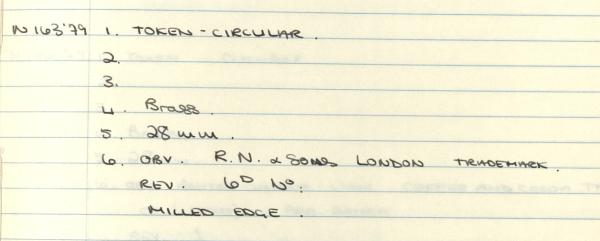 N 163'79 1. TOKEN - CIRCULAR.
2.
3.
4. Brass.
5. 28 mm.
6. OBV. R.N. & Sons LONDON TRADEMARK.
REV. 6D No:
MILLED EDGE.